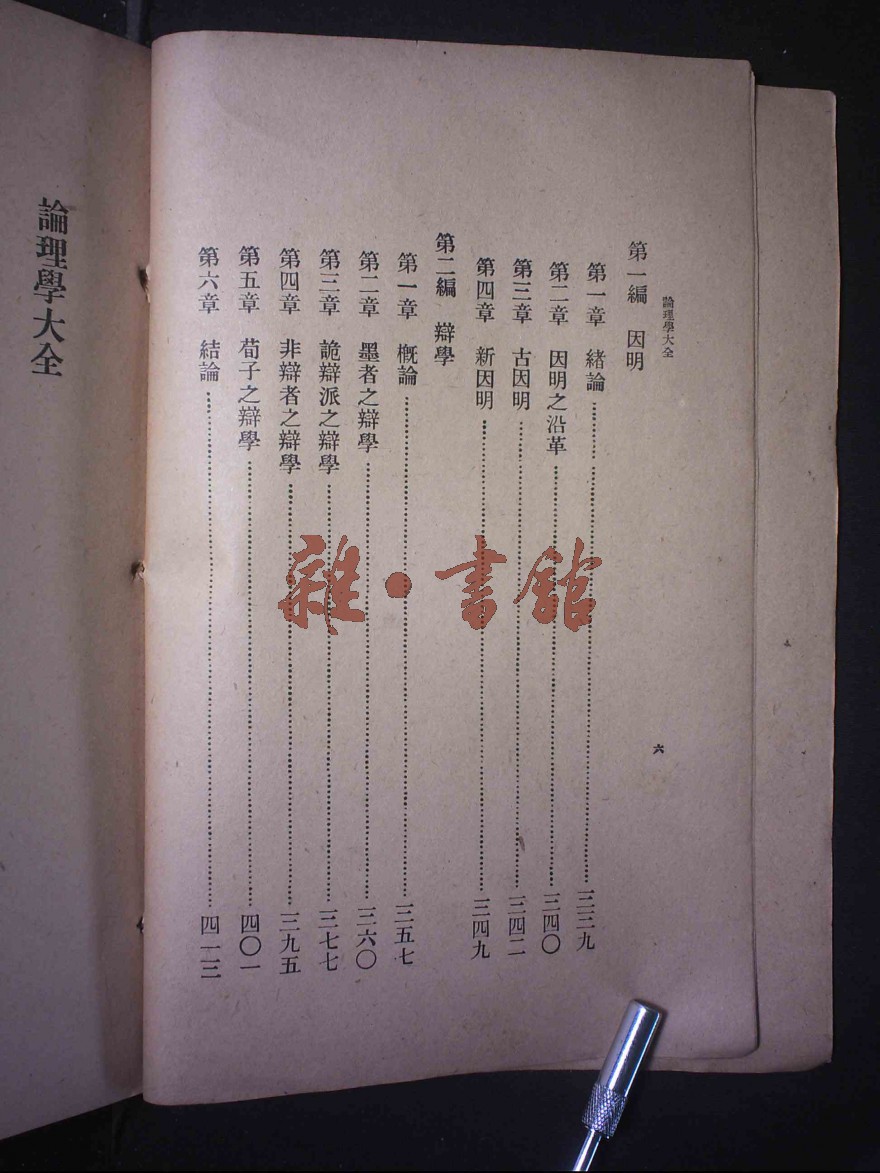 論理學大全
六
第一編　因明
第一章　緒論……三三九
第二章　因明之沿革……三四〇
第三章　古因明……三四二
第四章　新因明……三四九
第二編　辯學
第一章　概論……三五七
第二章　墨者之辯學……三六〇
第三章　詭辯派之辯學……三七七
第四章　非辯者之辯學……三九五
第五章　荀子之辯學……四〇一
第六章　結論……四一三
論理學大全
雜·書館